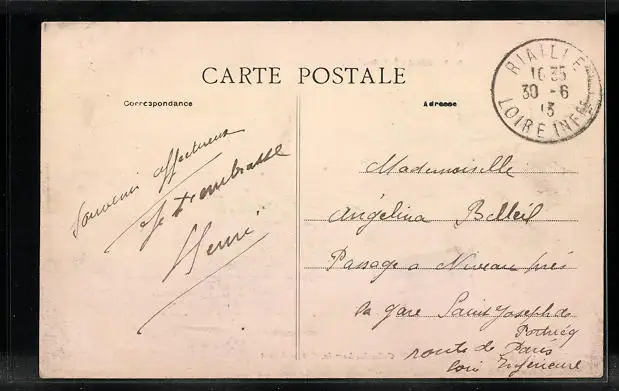 CARTE POSTALE
Correspondance
Adresse
RIAILLE
16 35
30 -6
13
LOIRE INFRE
Souvenir affectueux
Je t'embrasse
Henri
Mademoiselle
Angélina Belleil
Passage a Niveau près
la gare Saint Joseph de
Portricq
route de Paris
Loire Inferieure